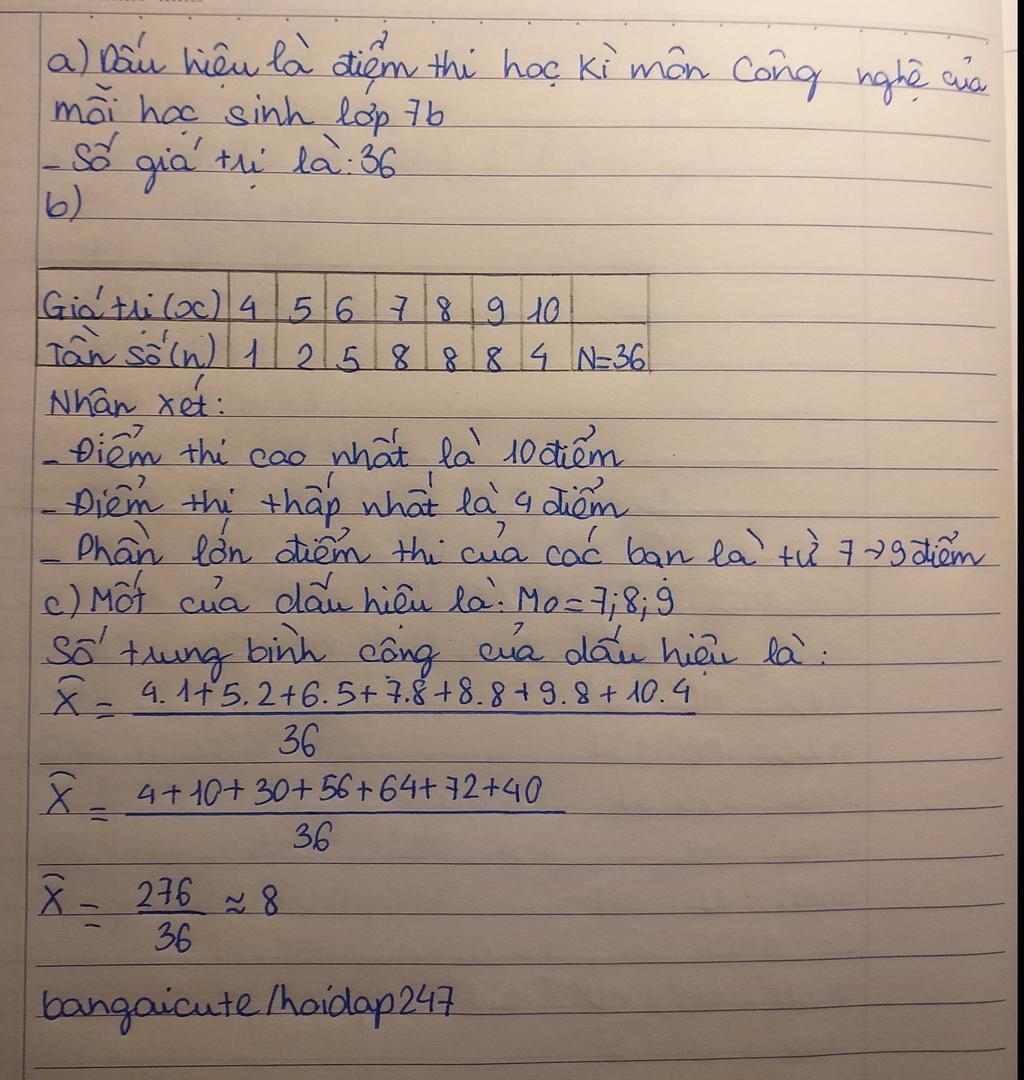 a) Dấu hiệu là điểm thi học kì môn Công nghệ của
mỗi học sinh lớp 7b
- Số giá trị là: 36
b)
Giá trị (x) 4 5 6 7 8 9 10
Tần số (n) 1 2 5 8 8 8 4 N=36
Nhận xét:
- Điểm thi cao nhất là 10 điểm
- Điểm thi thấp nhất là 4 điểm
- Phần lớn điểm thi của các bạn là từ 7→9 điểm
c) Mốt của dấu hiệu là: Mo = 7; 8; 9
Số trung bình cộng của dấu hiệu là:
X̄ = 4.1+5.2+6.5+7.8+8.8+9.8+10.4
36
X̄ = 4+10+30+56+64+72+40
36
X̄ = 276 ≈ 8
36
bangaicute/hoidap247